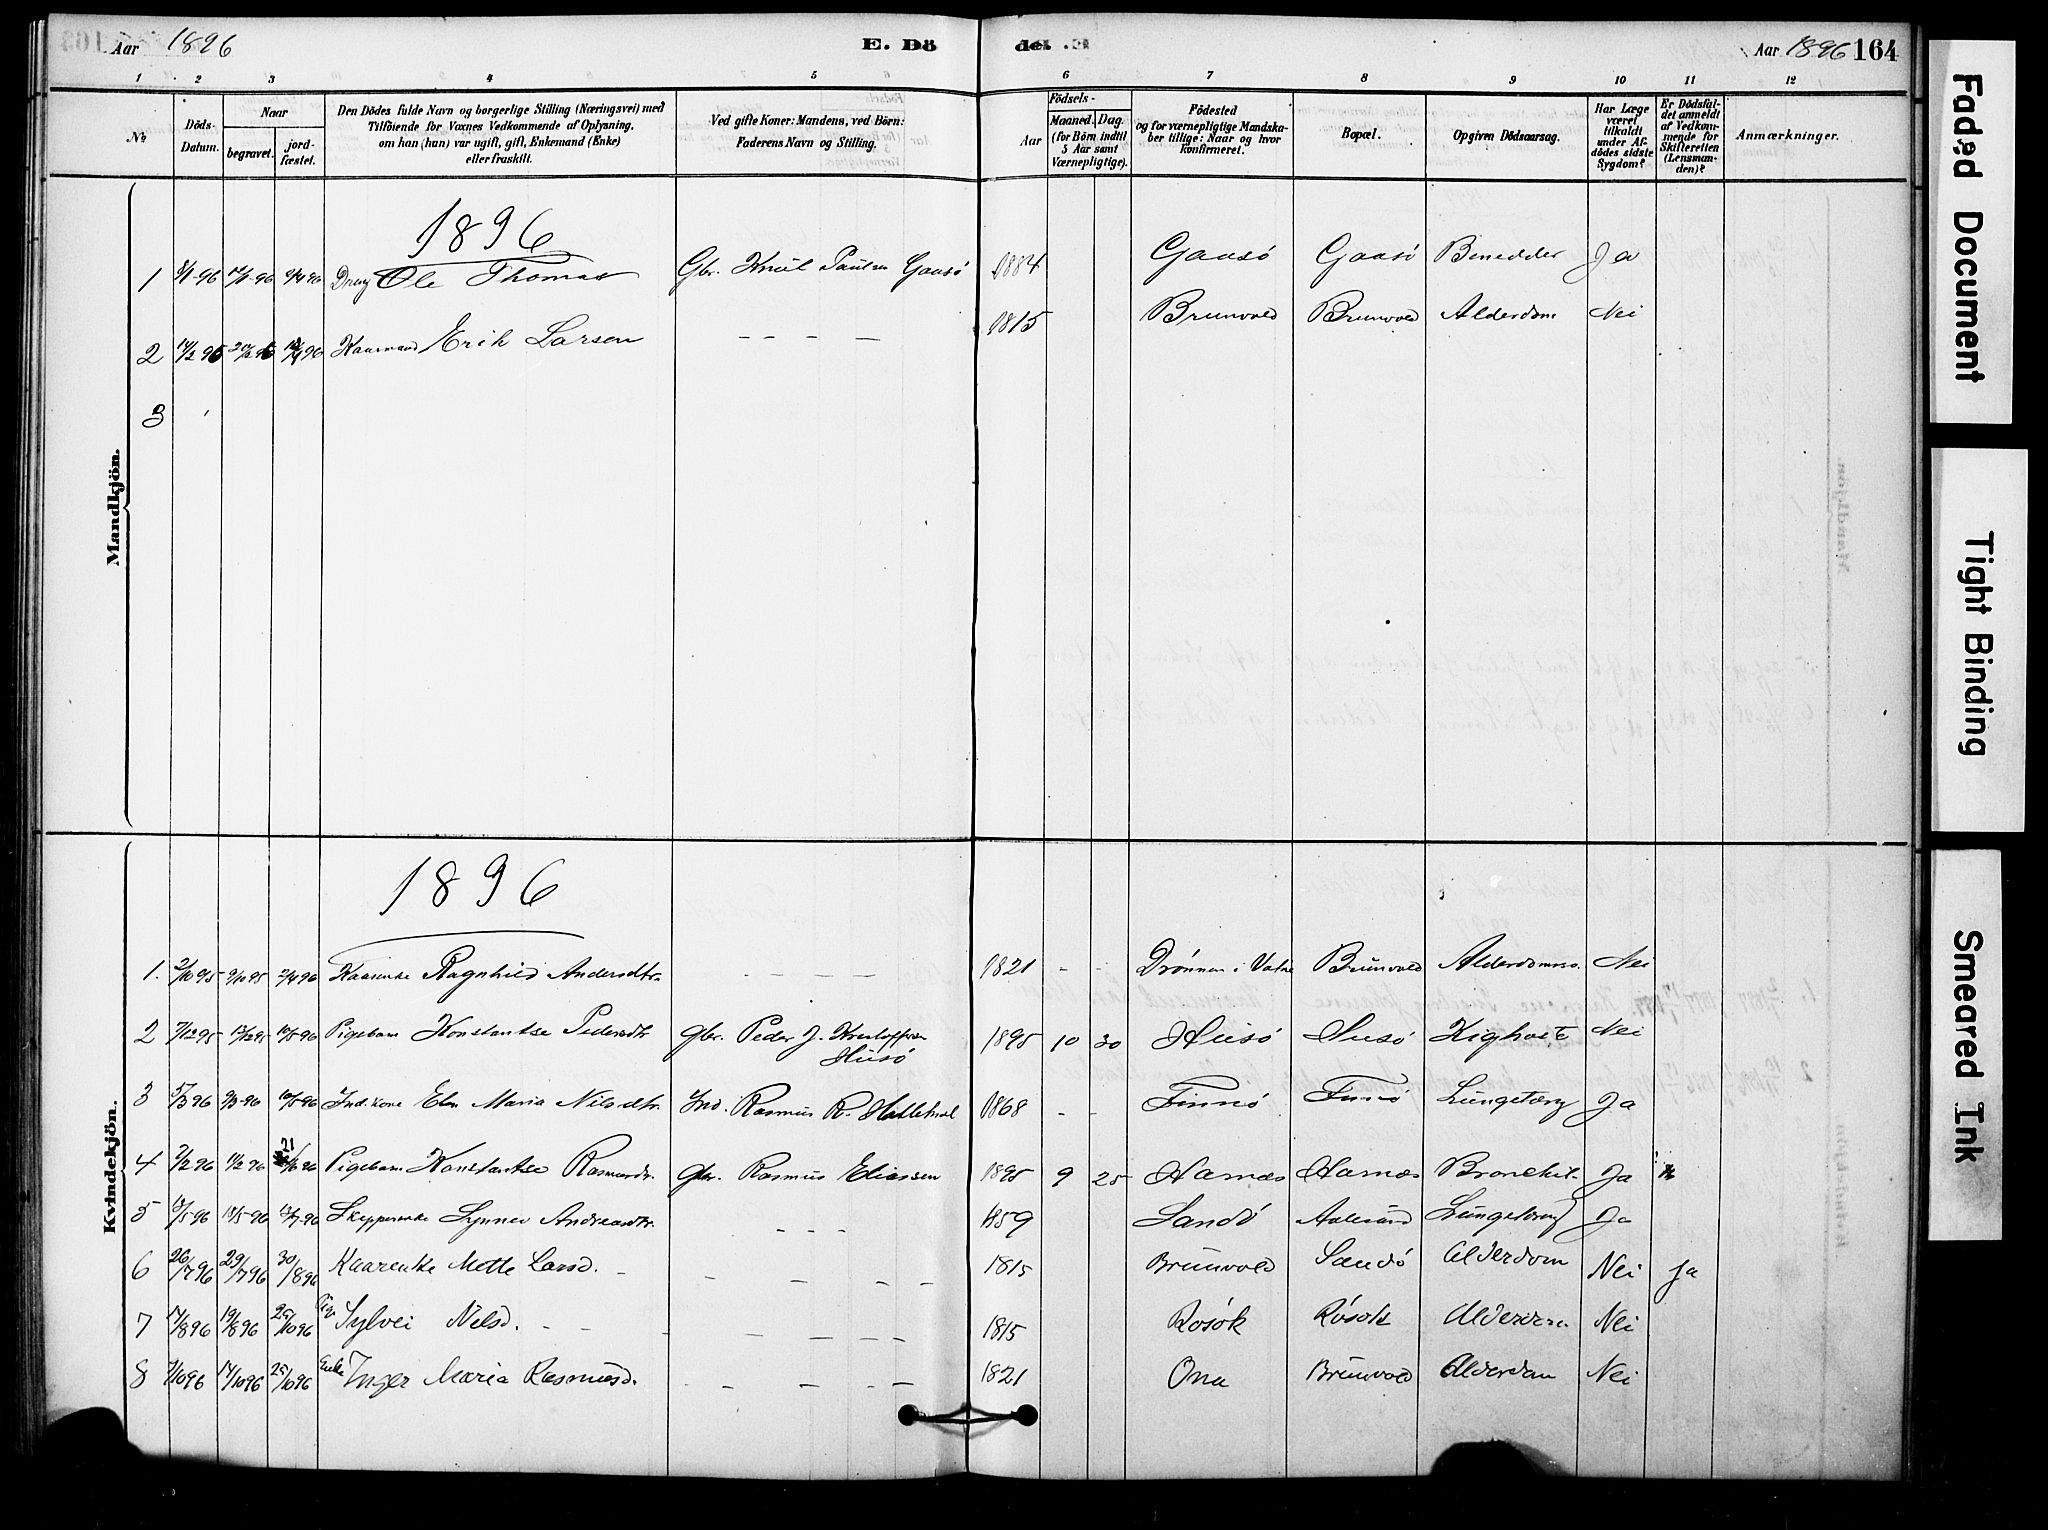 Aar 1896 E. Dö de. Aar 1896 164
1 2 3 4 5 6 7 8 9 10 11 12
№
Döds-Datum.
Naar
begravet.
jord-fæstet.
Den Dödes fulde Navn og borgerlige Stilling (Næringsvei) med
Tilföiende for Voxnes Vedkommende af Oplysning,
om han (hun) var ugift, gift, Enkemand (Enke)
eller fraskilt.
Ved gifte Koner: Mandens, ved Börn:
Faderens Navn og Stilling.
Födsels-
Aar
Maaned. Dag.
(for Börn indtil
5 Aar samt
Værnepligtige).
Födested
og for værnepligtige Mandska-
ber tillige: Naar og hvor
konfirmeret.
Bopæl.
Opgiven Dödsaarsag.
Har Læge
været
tilkaldt
under Af-
dödes sidste
Sygdom?
Er Dödsfal-
det anmeldt
af Vedkom-
mende for
Skifteretten
(Lensman-
den)?
Anmærkninger.
Mandkjön.
1896
1 Dreng Ole Thomas Gbr. Knut Paulsen Gaasö 1884 Gaasö Gaasö Benedder Ja
2 14/2 96 Kaarmand Erik Larsen – – – – 1815 Brunvold Brunvold Alderdom Nei
3
Kvindekjön.
1896
1. 2/10 95 9/10 95 2/4 96 Kaarenke Ragnhild Andersdtr. – – – – 1821 - - Drönnen i Vatne Brunvold Alderdomss. Nei
2 7/12 95 13/12 95 10/5 96 Pigebarn Konstantse Pedersdtr Gbr. Peder J. Kristoffersen Husö 1895 10 30 Husö Husö Kighoste Nei
3 5/3 96 9/3-96 10/5-96 Ind.kone Elen Maria Nilsdtr. Ind. Rasmus R. 1868 - - Finnö Finnö Lungetæring Ja
4 2/2 96 11/2 96 21/6 96 Pigebarn Konstantse Rasmusdtr. Gbr. Rasmus Eliassen 1895 9 25 Harnæs Harnæs Bronchit. Ja
5 12/5-96 18/5-96 12/7-96 Skipperenke Synnev Andreasdtr. – – – 1859 Sandö Aalesund Lungetæring Ja
6 26/7 96 29/7 96 30/8 96 Kaarenke Mette Larsd. – – – – – 1815 Brunvold Sandö Alderdom Nei Ja
7 14/8 96 19/8 96 25/10 96 Pige Sylvei Nelsd. – – – – – – – 1815 Rösok Rösok Alderdom Nei
8 7/10 96 14/10 96 25/10 96 Enke Inger Maria Rasmusd. – – – – 1821 Ona Brunvold Alderdom Nei
Faded Document
Tight Binding
Smeared Ink